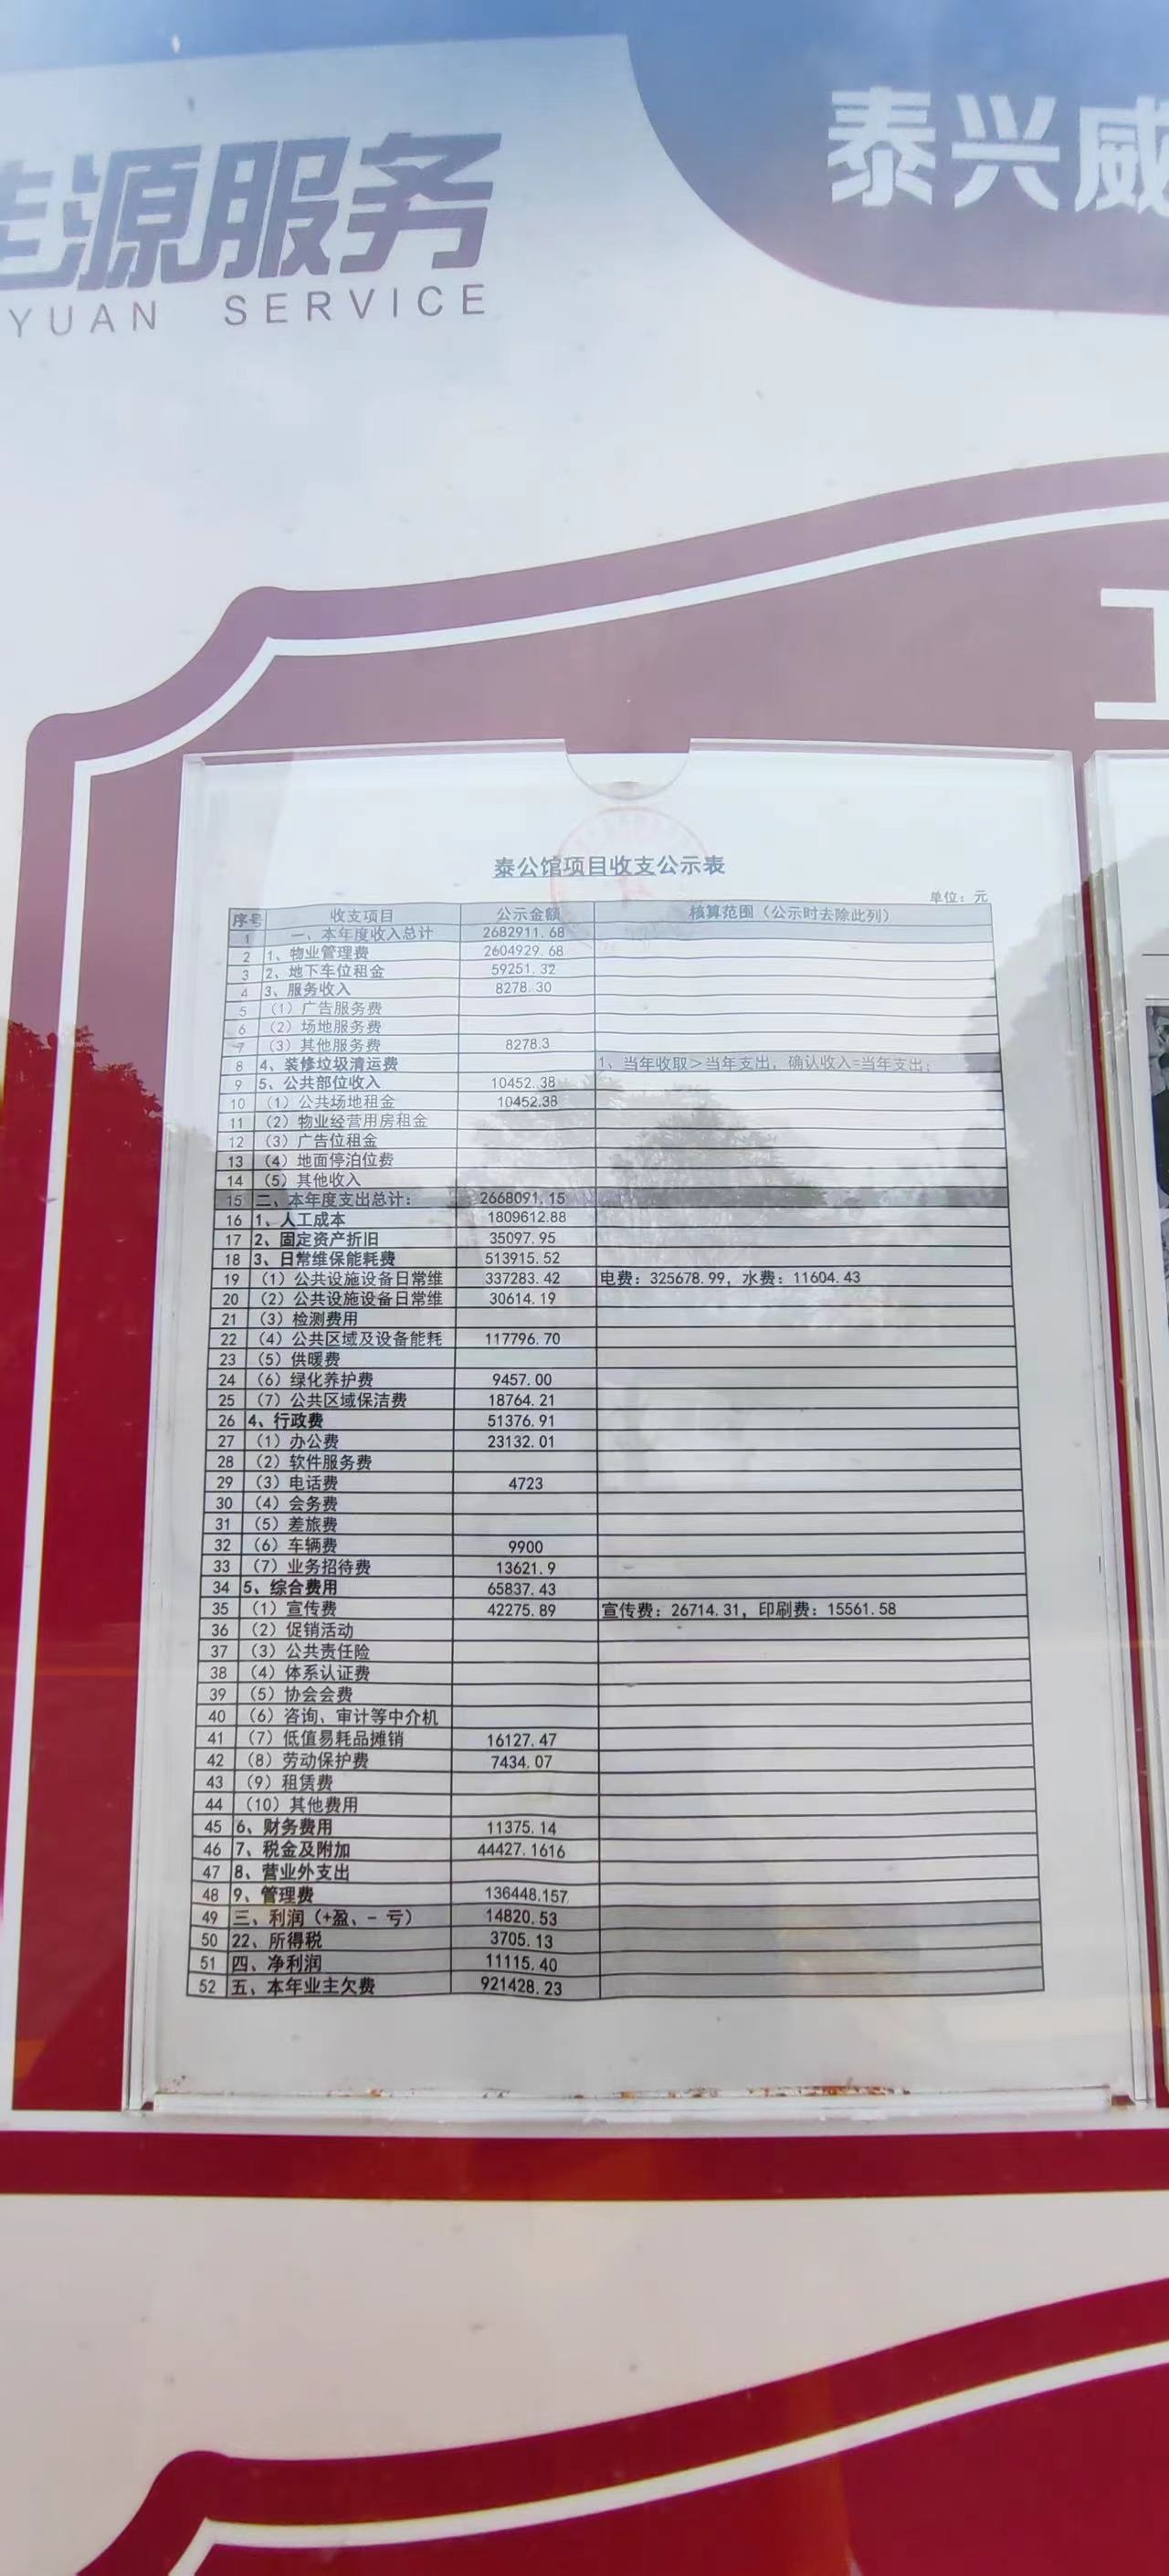 源服务
YUAN SERVICE
泰兴威
泰公馆项目收支公示表
单位：元
序号 收支项目 公示金额 核算范围（公示时去除此列）
1 一、本年度收入总计 2682911.68
2 1、物业管理费 2604929.68
3 2、地下车位租金 59251.32
4 3、服务收入 8278.30
5 （1）广告服务费
6 （2）场地服务费
7 （3）其他服务费 8278.3
8 4、装修垃圾清运费 1、当年收取＞当年支出，确认收入=当年支出；
9 5、公共部位收入 10452.38
10 （1）公共场地租金 10452.38
11 （2）物业经营用房租金
12 （3）广告位租金
13 （4）地面停泊位费
14 （5）其他收入
15 二、本年度支出总计： 2668091.15
16 1、人工成本 1809612.88
17 2、固定资产折旧 35097.95
18 3、日常维保能耗费 513915.52
19 （1）公共设施设备日常维 337283.42 电费：325678.99，水费：11604.43
20 （2）公共设施设备日常维 30614.19
21 （3）检测费用
22 （4）公共区域及设备能耗 117796.70
23 （5）供暖费
24 （6）绿化养护费 9457.00
25 （7）公共区域保洁费 18764.21
26 4、行政费 51376.91
27 （1）办公费 23132.01
28 （2）软件服务费
29 （3）电话费 4723
30 （4）会务费
31 （5）差旅费
32 （6）车辆费 9900
33 （7）业务招待费 13621.9
34 5、综合费用 65837.43
35 （1）宣传费 42275.89 宣传费：26714.31，印刷费：15561.58
36 （2）促销活动
37 （3）公共责任险
38 （4）体系认证费
39 （5）协会会费
40 （6）咨询、审计等中介机
41 （7）低值易耗品摊销 16127.47
42 （8）劳动保护费 7434.07
43 （9）租赁费
44 （10）其他费用
45 6、财务费用 11375.14
46 7、税金及附加 44427.1616
47 8、营业外支出
48 9、管理费 136448.157
49 三、利润（+盈、- 亏） 14820.53
50 22、所得税 3705.13
51 四、净利润 11115.40
52 五、本年业主欠费 921428.23